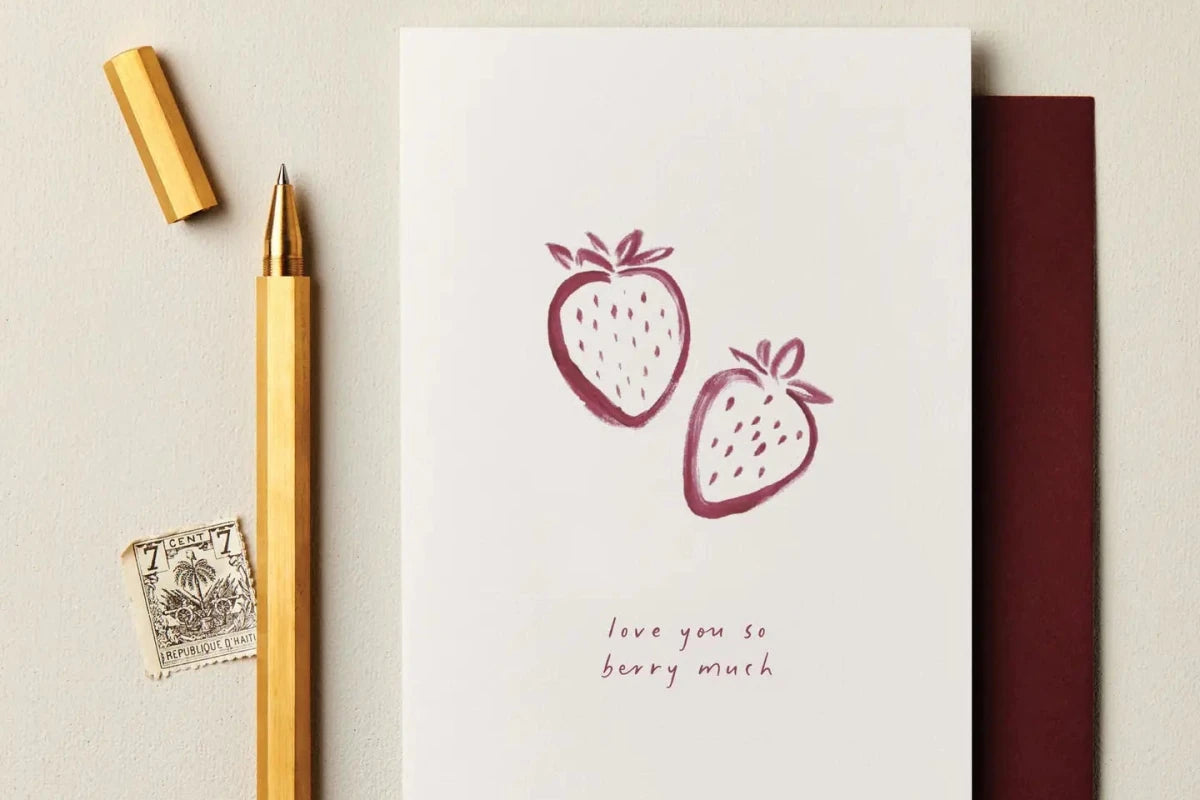 7 CENT 7
REPUBLIQUE D'HAITI
love you so
berry much